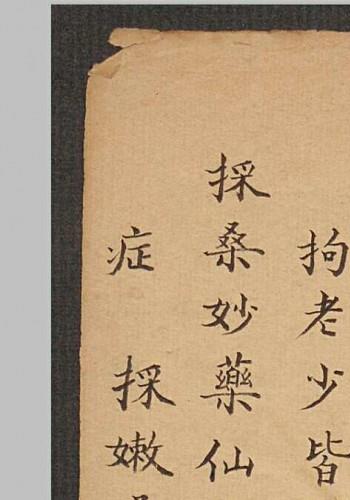 拘老少皆
採桑妙藥仙
症　採嫩